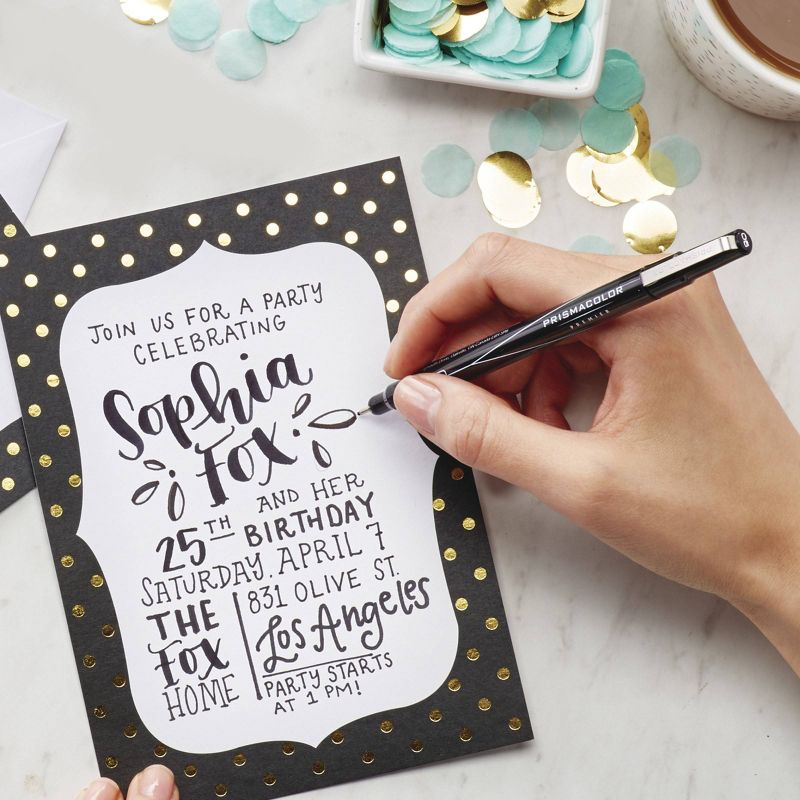 JOIN US FOR A PARTY
CELEBRATING
Sophia
Fox
AND HER
25TH BIRTHDAY
SATURDAY, APRIL 7
THE
FOX
HOME
831 OLIVE ST.
Los Angeles
PARTY STARTS
AT 1 PM!
PRISMACOLOR
PREMIER
08